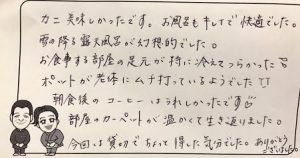 カニ 美味しかったです。お風呂もキレイで快適でした。
雪の降る露天風呂が幻想的でした。
お食事する部屋の足元が特に冷えてつらかった
ポットが老体にムチ打っているようでした
朝食後のコーヒーはうれしかったです
部屋のカーペットが温かくて生き返りました。
今回は貸切でちょっと得した気分でした。ありがとう
ございました。